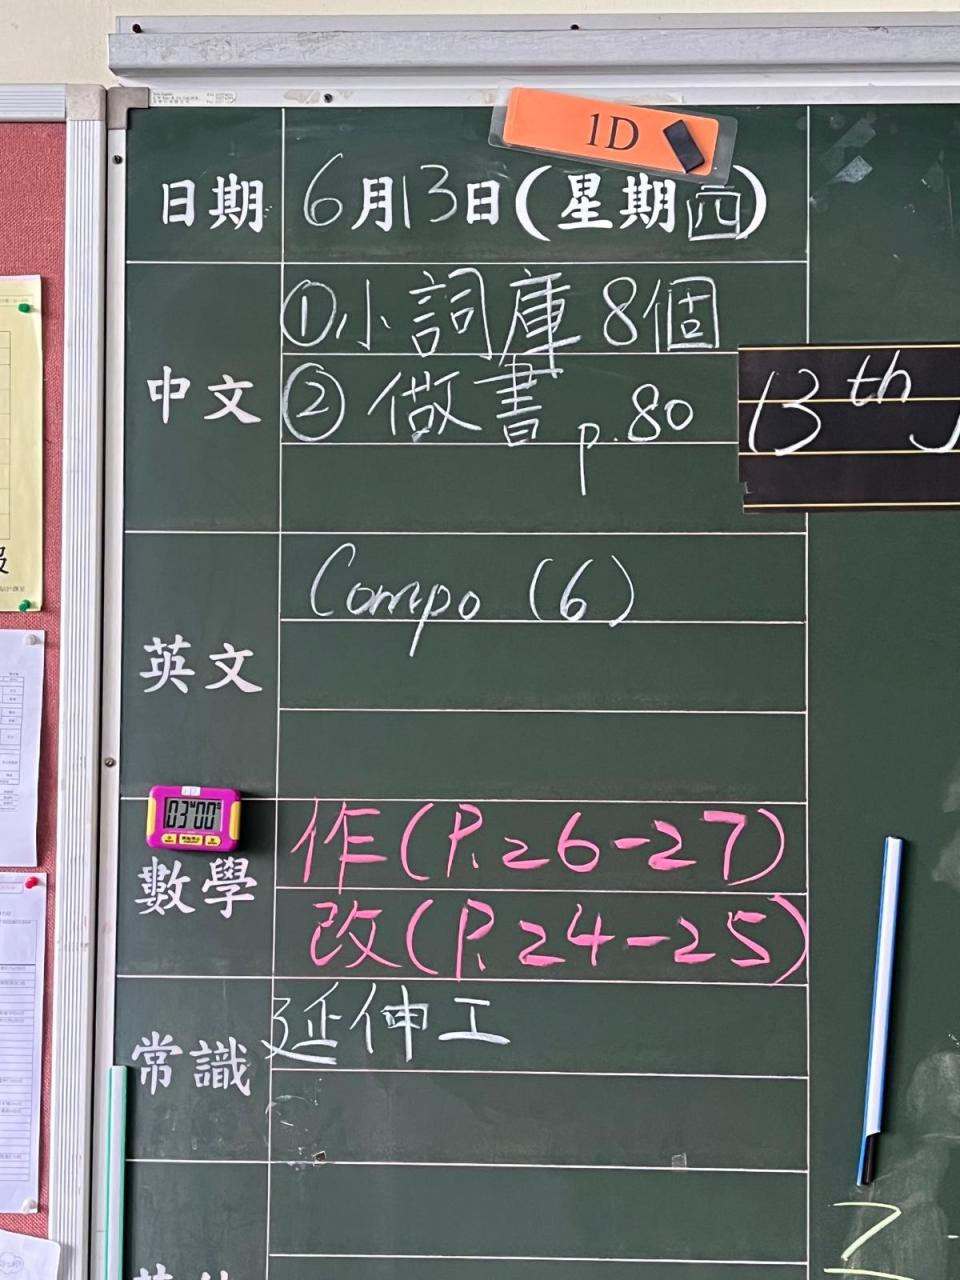 1D
日期 6月13日(星期四)
中文
①小詞庫 8個
②做書 p.80
13th J
英文
Compo (6)
03 00
數學
作(P.26-27)
改(P.24-25)
常識
延伸工